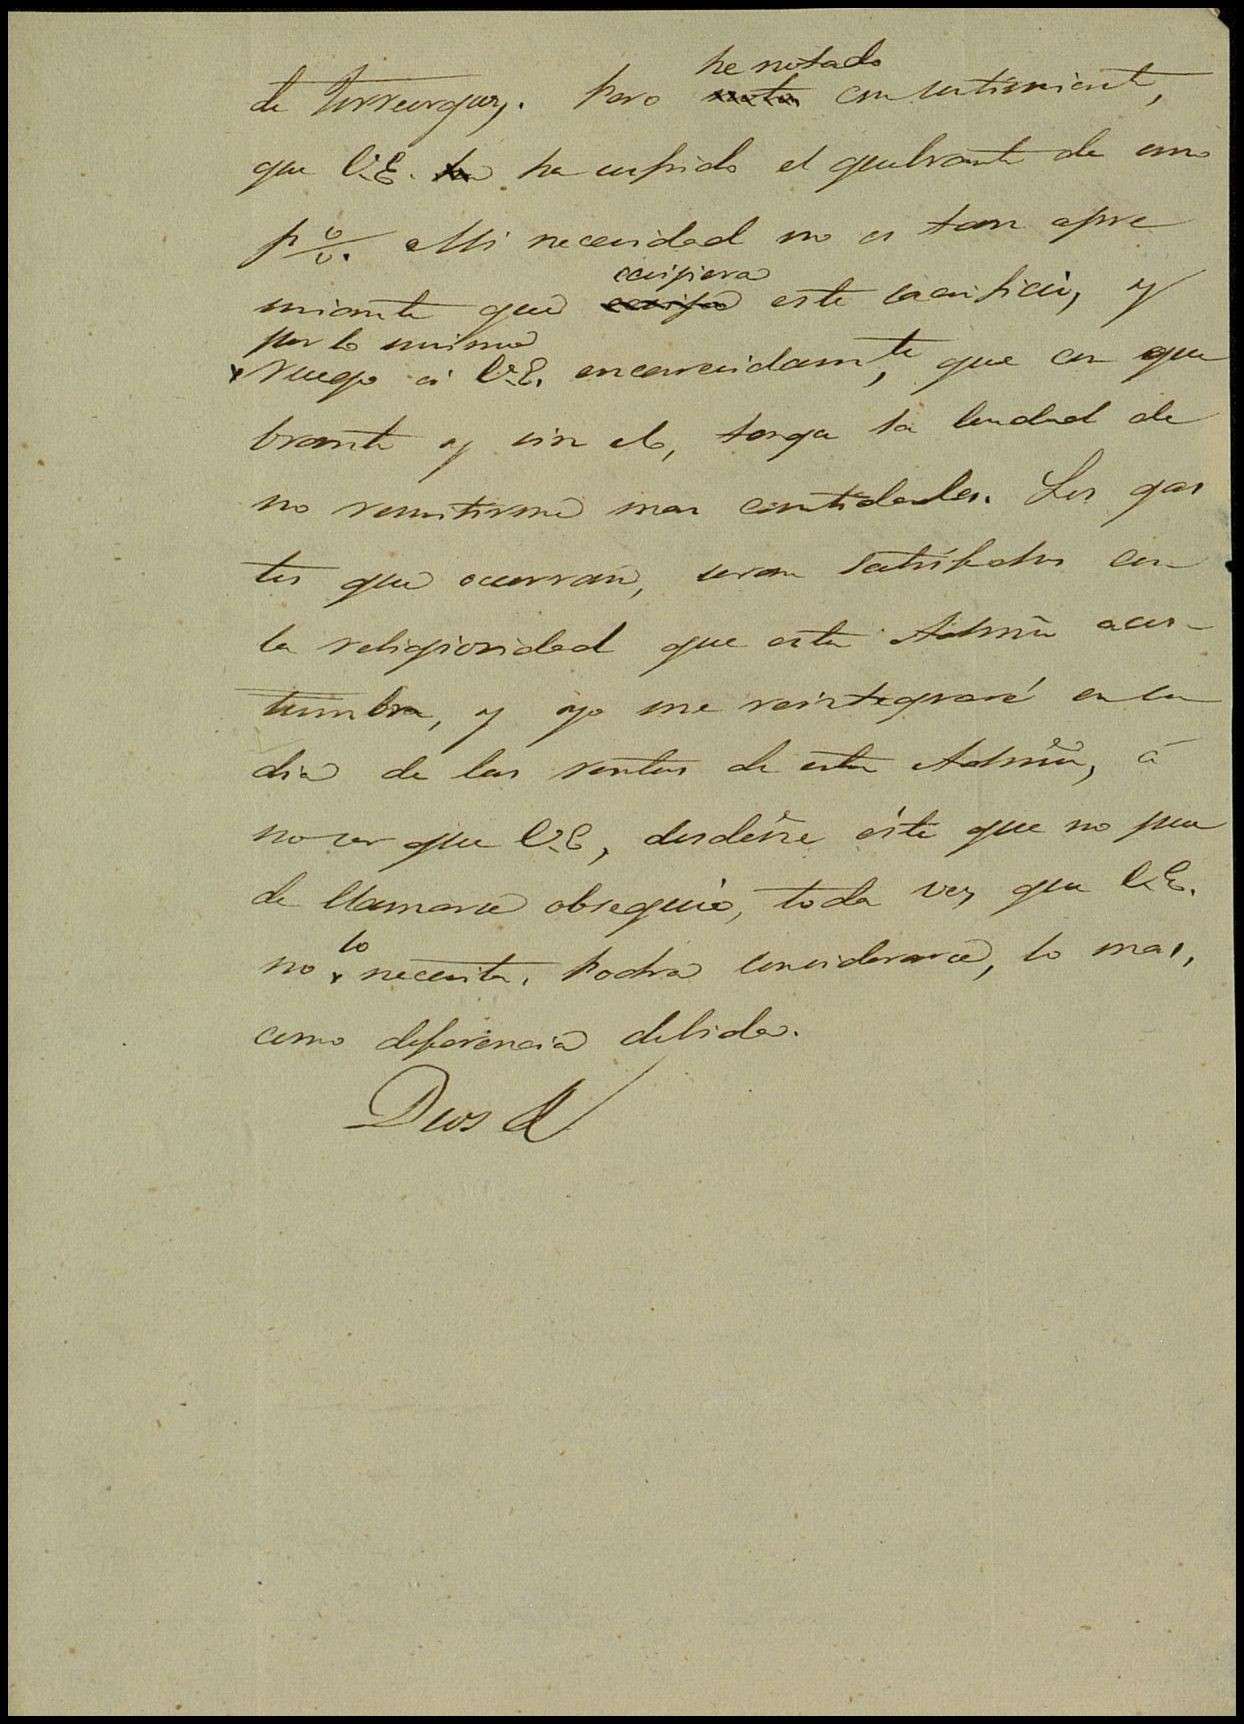 he notado
de Torreorgaz. Pero con sentimiento,
que V.E. ha sufrido el quebranto de uno
p%. Mi necesidad no es tan apre
ecsijiera
miante que este sacrificio, y
por lo mismo
ruego á V.E. encarecidamte, que con que
branto y sin el, tenga la bondad de
no remitirme mas cantidades. Los gas
tos que ocurran, seran satisfechos con
la religiosidad que esta Admon acos-
tumbra, y yo me reintegraré en su
dia de las rentas de esta Admon, á
no ser que V.E, desdeñe éste que no pue
de llamarse obsequio, toda vez que V.E.
lo
no necesita. Podra considerarse, lo mas,
como deferencia debida.
Dios &